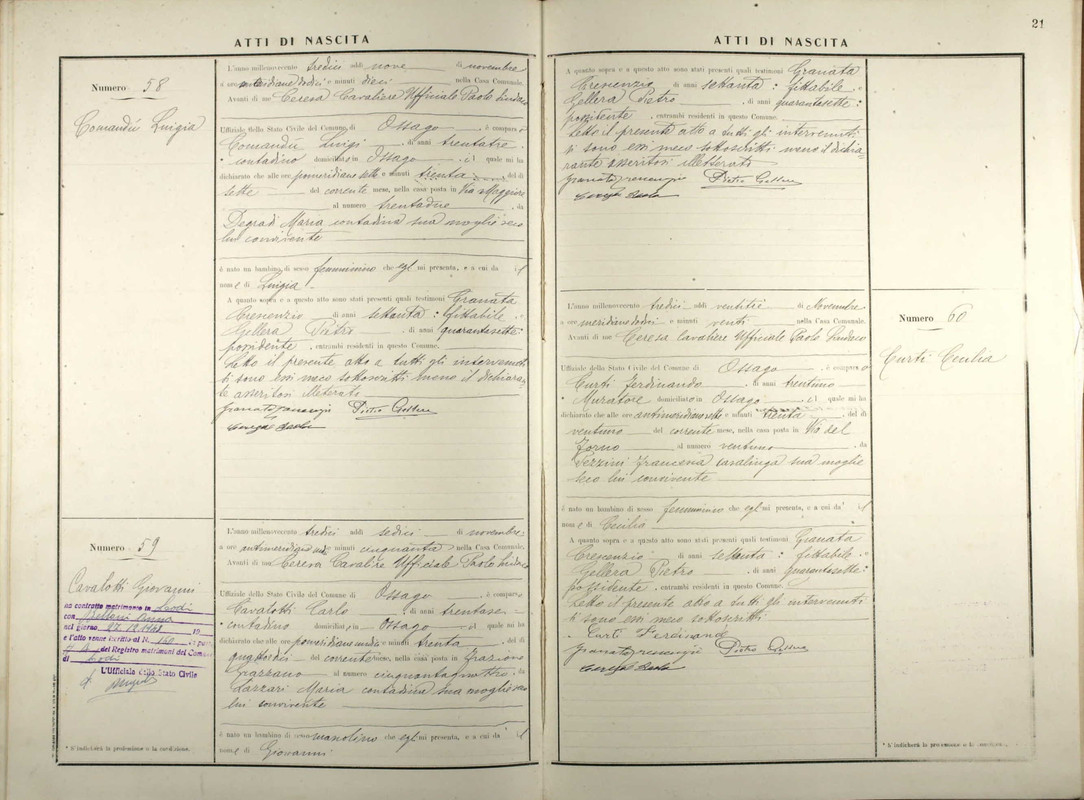 ATTI DI NASCITA
Numero 58
Comandù Luigia
L'anno millenovecento tredici addì nove di novembre
a ore antimeridiane dodici e minuti dieci nella Casa Comunale.
Avanti di me Ceresa Cavaliere Ufficiale Paolo Sindaco
Ufficiale dello Stato Civile del Comune di Ossago è comparso
Comandù Luigi di anni trentatre
contadino domiciliato in Ossago il quale mi ha
dichiarato che alle ore pomeridiane sette e minuti trenta del dì
sette del corrente mese, nella casa posta in Via Maggiore
al numero trentadue da
Degradi Maria contadina sua moglie seco
lui convivente
è nato un bambino di sesso femminino che egli mi presenta, e a cui da il
nome di Luigia
A quanto sopra e a questo atto sono stati presenti quali testimoni Granata
Crescenzio di anni settanta : fittabile e
Gellera Pietro di anni quarantasette
possidente entrambi residenti in questo Comune.
Letto il presente atto a tutti gli intervenuti
si sono essi meco sottoscritti meno il dichiaran
te
Pietro Gellera
Numero 59
Cavalotti Giovanni
ha contratto matrimonio in Lodi
con
nel giorno
e l'atto venne iscritto al N. 160
del Registro matrimoni del Comune
di Lodi
L'Ufficiale dello Stato Civile
L'anno millenovecento tredici addì sedici di novembre
a ore antimeridiane e minuti cinquanta nella Casa Comunale.
Avanti di me Ceresa Cavaliere Ufficiale Paolo Sindaco
Ufficiale dello Stato Civile del Comune di Ossago è comparso
Cavalotti Carlo di anni trentasei
contadino domiciliato in Ossago il quale mi ha
dichiarato che alle ore pomeridiane e minuti trenta del dì
quattordici del corrente mese, nella casa posta in Frazione
Grazzano al numero cinquantaquattro da
Lazzari Maria contadina sua moglie seco
lui convivente
è nato un bambino di sesso mascolino che egli mi presenta, e a cui da il
nome di Giovanni
* S'indicherà la professione o la condizione.
21
ATTI DI NASCITA
A quanto sopra e a questo atto sono stati presenti quali testimoni Granata
Crescenzio di anni settanta : fittabile e
Gellera Pietro di anni quarantasette :
possidente entrambi residenti in questo Comune.
Letto il presente atto a tutti gli intervenuti
si sono essi meco sottoscritti meno il dichia-
rante illetterato
Pietro Gellera
Numero 60
Curti Cecilia
L'anno millenovecento tredici addì ventitrè di Novembre
a ore meridiane dodici e minuti venti nella Casa Comunale.
Avanti di me Ceresa Cavaliere Ufficiale Paolo Sindaco
Ufficiale dello Stato Civile del Comune di Ossago è comparso
Curti Ferdinando di anni trentuno
Muratore domiciliato in Ossago il quale mi ha
dichiarato che alle ore antimeridiane sette e minuti trenta del dì
ventuno del corrente mese, nella casa posta in Via del
Forno al numero ventuno da
Francesca casalinga sua moglie
seco lui convivente
è nato un bambino di sesso femminino che egli mi presenta, e a cui da il
nome di Cecilia
A quanto sopra e a questo atto sono stati presenti quali testimoni Granata
Crescenzio di anni settanta : fittabile e
Gellera Pietro di anni quarantasette :
possidente entrambi residenti in questo Comune.
Letto il presente atto a tutti gli intervenuti
si sono essi meco sottoscritti
Curti Ferdinando
Pietro Gellera
* S'indicherà la professione o la condizione.